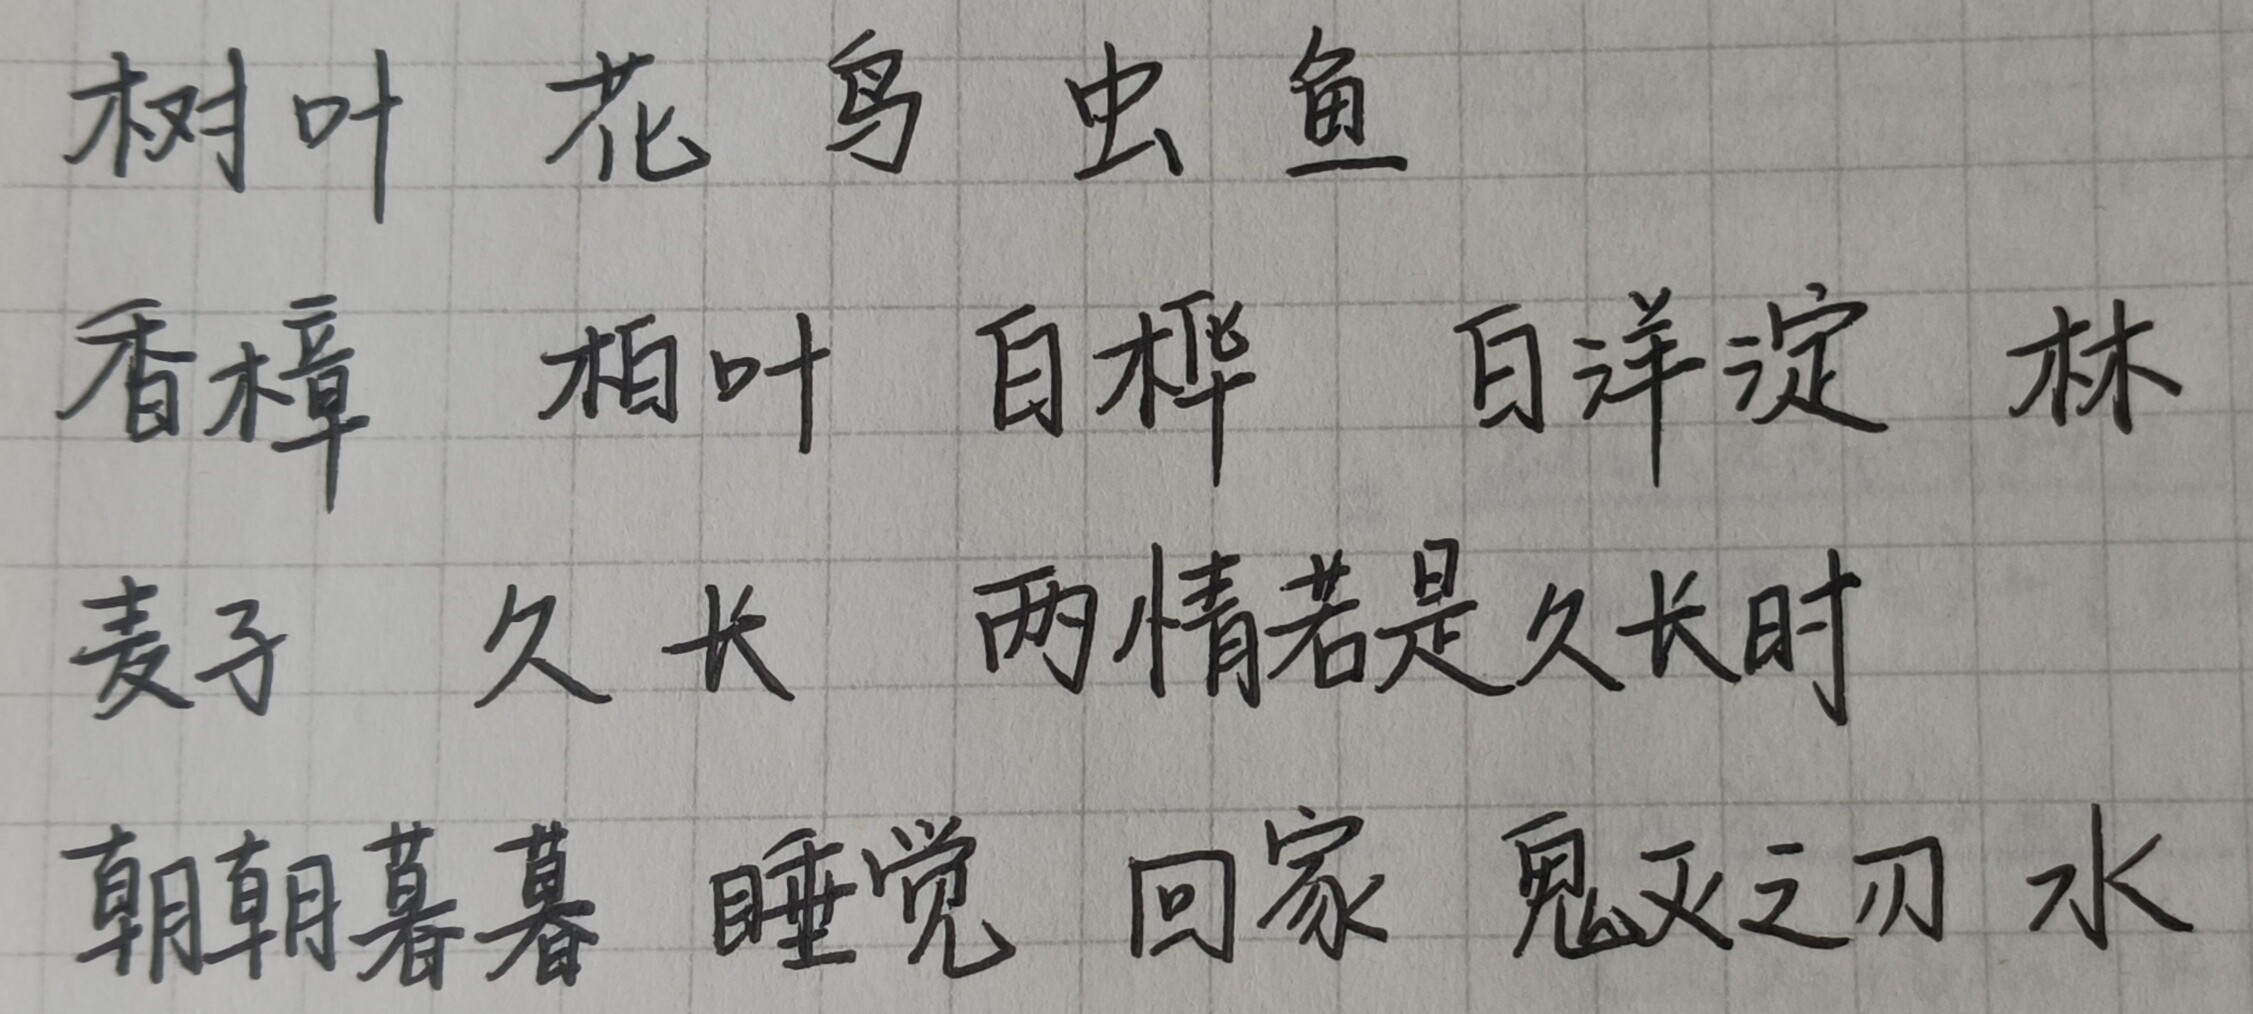 树叶 花 鸟 虫 鱼
香樟 柏叶 白桦 白洋淀 林
麦子 久 长 两情若是久长时
朝朝暮暮 睡觉 回家 鬼灭之刃 水